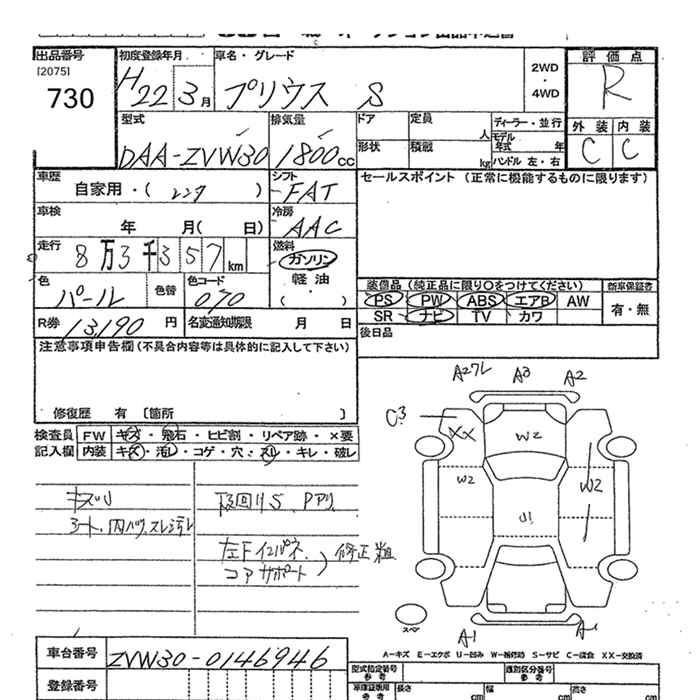 出品番号 初度登録年月 車名・グレード 評価点
[2075]
730 H22 3月 プリウス S 2WD・4WD R
型式 排気量 ドア 定員 人 ディーラー・並行 外装 内装
DAA-ZVW30 1800cc 形状 積載 kg モデル年式 年 ハンドル 左・右 C C
車歴 自家用・( ) シフト FAT セールスポイント (正常に機能するものに限ります)
車検 年 月( 日) 冷房 AAC
走行 8万3千357km 燃料 ガソリン・軽油・( )
色 パール 色替 色コード 070
装備品 (純正品に限り○をつけてください) 新車保証書
PS PW ABS エアB AW 有・無
SR ナビ TV カワ
R券 13190円 名変通知期限 月 日 後日品
注意事項申告欄(不具合内容等は具体的に記入して下さい)
修復歴 有 [箇所 ]
検査員 FW キズ・飛石・ヒビ割・リペア跡・×要
記入欄 内装 キズ・汚レ・コゲ・穴・スレ・キレ・破レ
キズU
シート、内ハリ、スレ
左Fインパネ、
コアサポート 修正粗
A3 A2
C3 XX W2
W2 W2
U1
A1 A1
スペア
A-キズ E-エクボ U-凹み W-補修跡 S-サビ C-腐食 XX-交換済
車台番号 ZVW30-0146946 型式指定番号 参考 類別区分番号 参考
登録番号 車庫証明用 参考 長さ cm 幅 cm 高さ cm